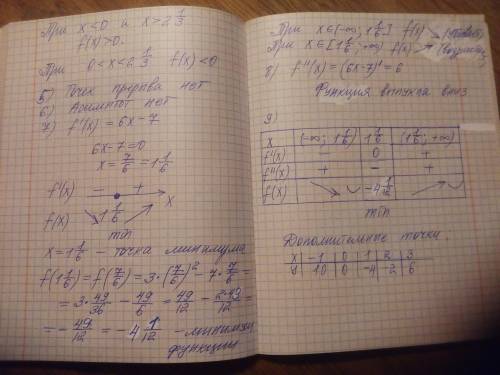 При x<0 и x>2 1/3
f(x)>0.
При 0<x<2 1/3 f(x)<0
5) Точек разрыва нет
6) Асимптот нет
7) f'(x) = 6x-7
6x-7=0
x = 7/6 = 1 1/6
f'(x) - +
x
f(x) 1 1/6
min
x = 1 1/6 - точка минимума
f(1 1/6) = f(7/6) = 3·(7/6)² - 7·7/6 =
= 3·49/36 - 49/6 = 49/12 - 2·49/12 =
= - 49/12 = -4 1/12 - минимум
функции
При x∈(-∞; 1 1/6] f(x) ↘
При x∈[1 1/6; +∞) f(x) ↗
8) f''(x) = (6x-7)' = 6
Функция выпукла вниз
9)
x (-∞; 1 1/6) 1 1/6 (1 1/6; +∞)
f'(x) - 0 +
f''(x) + - +
f(x) ↘ ◡ -4 1/12 ↗ ◡
min
Дополнительные точки.
x -1 0 1 2 3
y 10 0 -4 -2 6